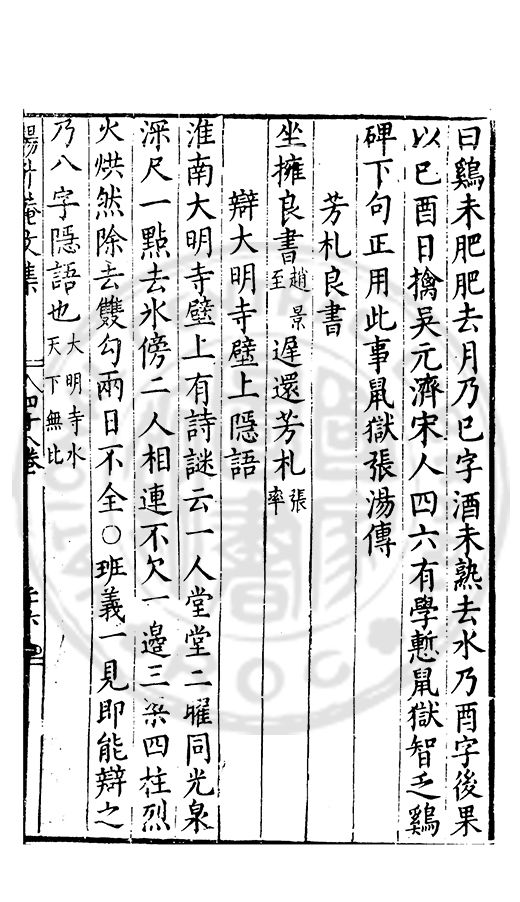 曰鷄未肥肥去月乃巳字酒未熟去水乃酉字後果
以巳酉日擒吳元濟宋人四六有學慙鼠獄智乏鷄
碑下句正用此事鼠獄張湯傳
芳札良書
坐擁良書趙景至遲還芳札張率
辯大明寺壁上隱語
淮南大明寺壁上有詩謎云一人堂堂二曜同光泉
深尺一點去氷傍二人相連不欠一邉三梁四柱烈
火烘然除去雙勾兩日不全○班義一見即能辯之
乃八字隱語也大明寺水天下無比
楊升菴文集
八四十八卷